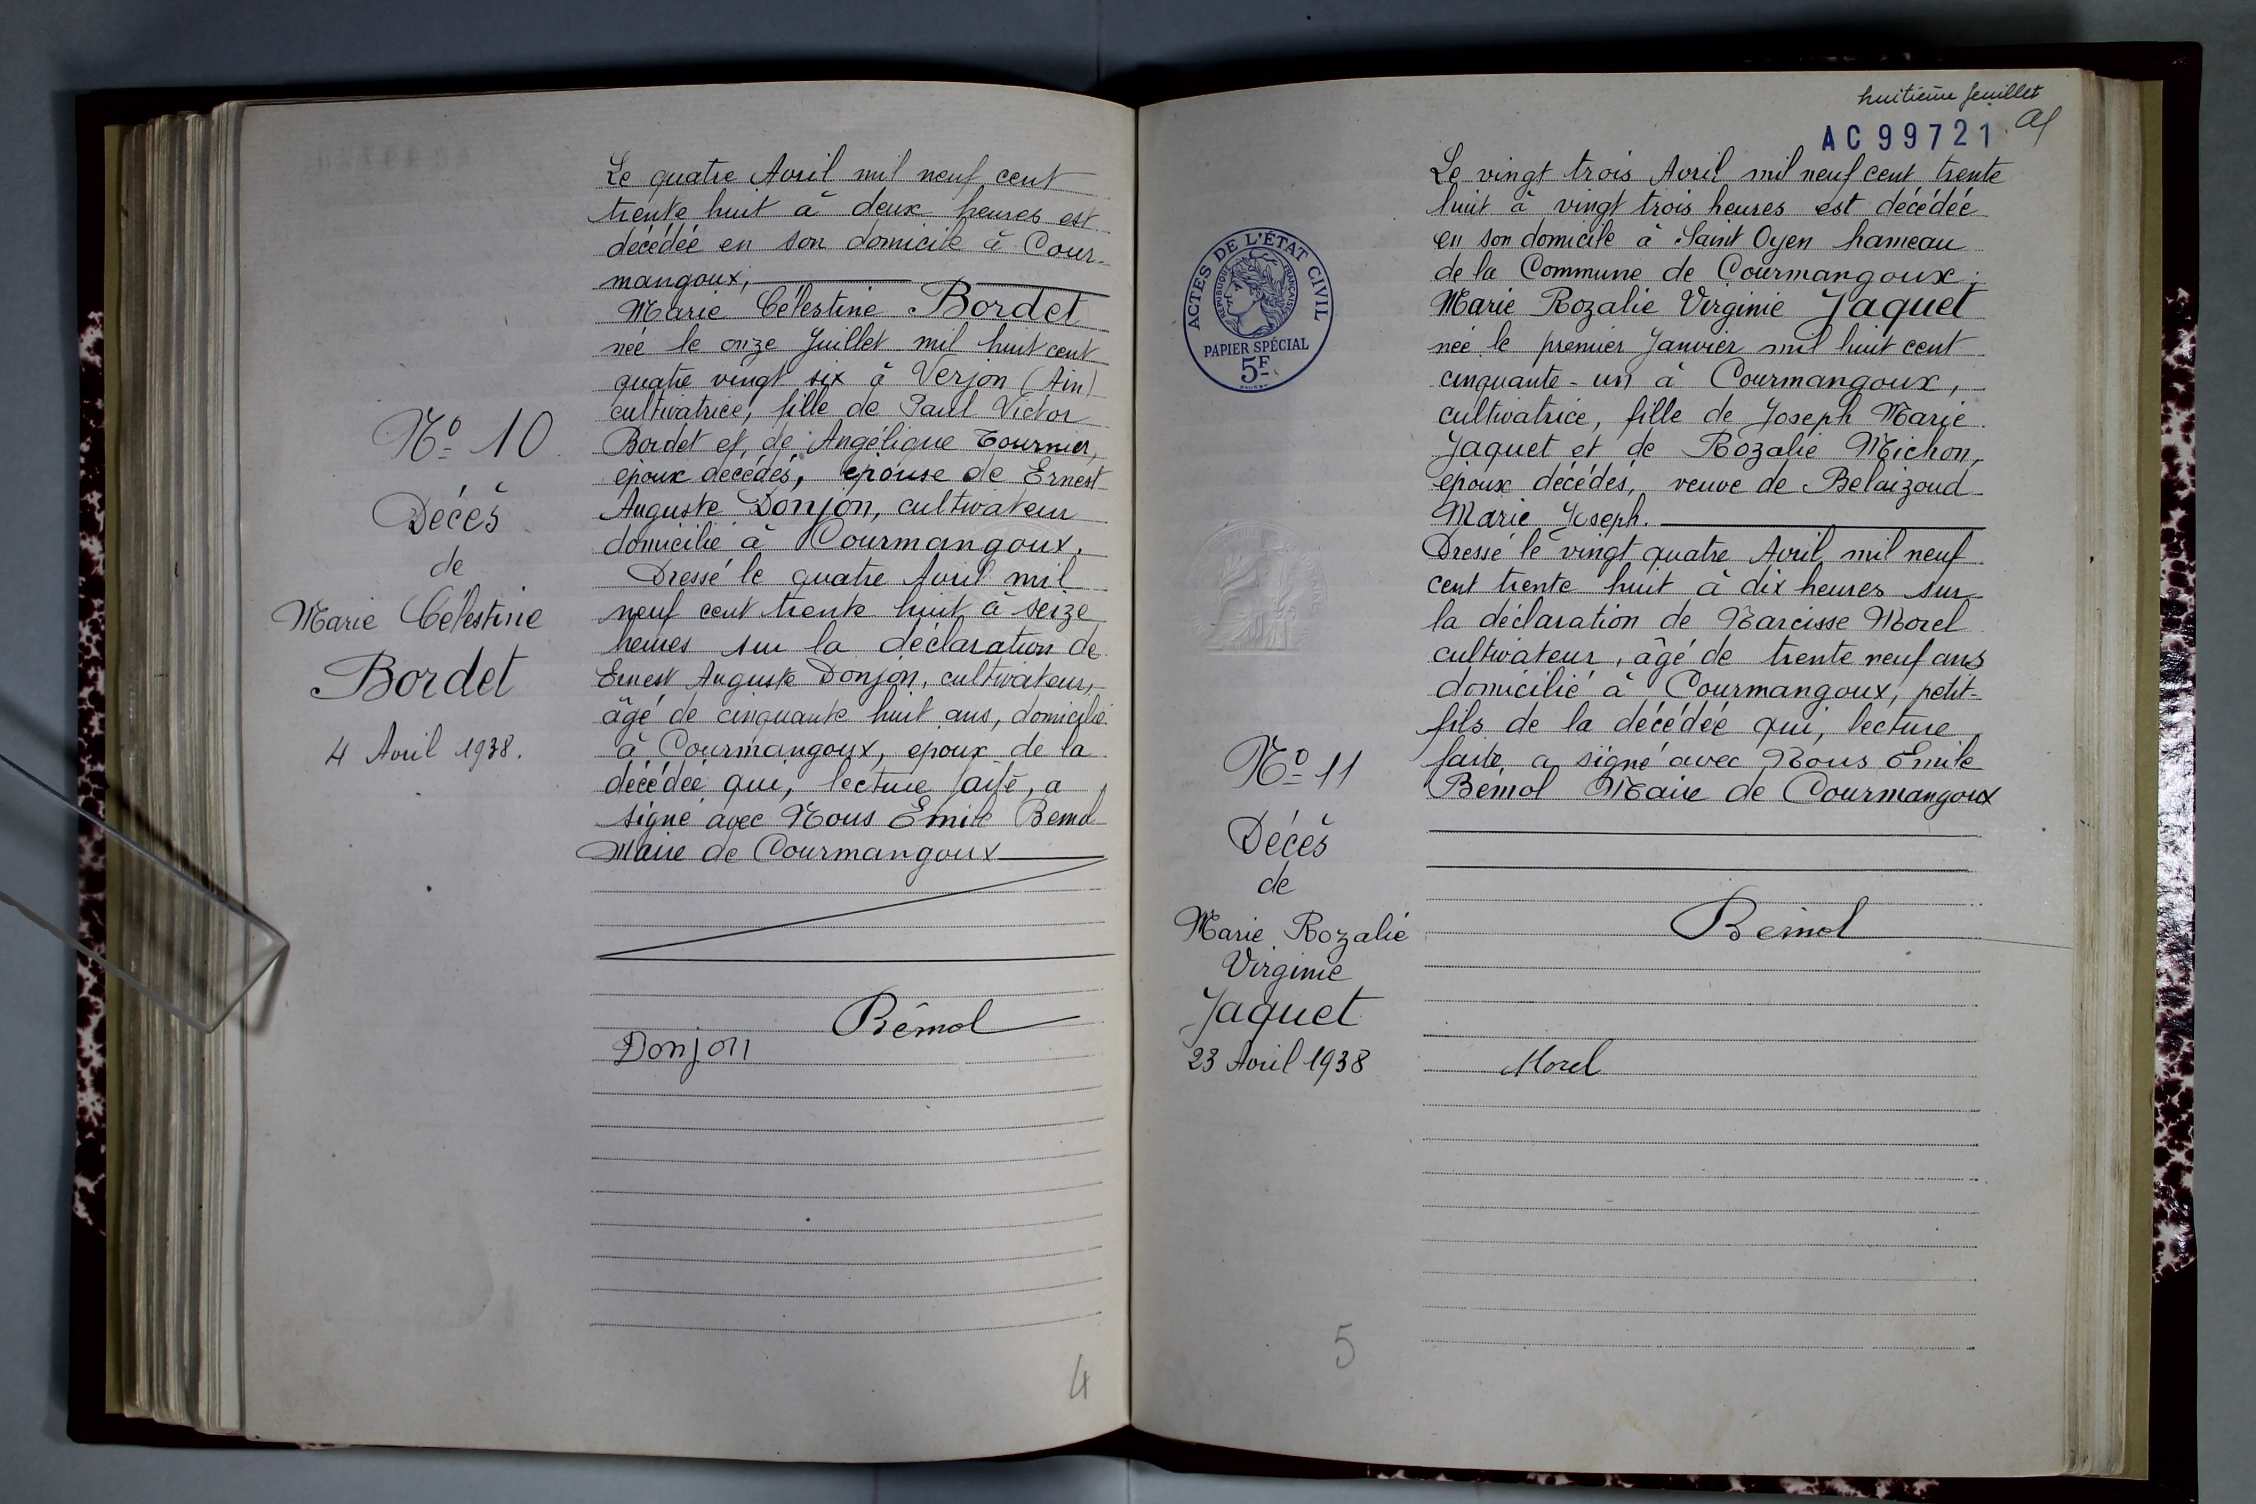 Le quatre Avril mil neuf cent
trente huit à deux heures est
décédée en son domicile à Cour-
mangoux,
Marie Célestine Bordet
née le onze Juillet mil huit cent
quatre vingt six à Verjon (Ain)
cultivatrice, fille de Paul Victor
Bordet et de Angélique Tournier,
époux décédés, épouse de Ernest
Auguste Donjon, cultivateur
domicilié à Courmangoux.
Dressé le quatre Avril mil
neuf cent trente huit à seize
heures sur la déclaration de
Ernest Auguste Donjon, cultivateur,
âgé de cinquante huit ans, domicilié
à Courmangoux, époux de la
décédée qui, lecture faite, a
signé avec Nous Emile Bémol
Maire de Courmangoux
Bémol
Donjon
N° 10
Décès
de
Marie Célestine
Bordet
4 Avril 1938.
4
huitième feuillet
AC99721
Le vingt trois Avril mil neuf cent trente
huit à vingt trois heures est décédée
en son domicile à Saint Oyen hameau
de la Commune de Courmangoux,
Marie Rozalie Virginie Jaquet
née le premier Janvier mil huit cent
cinquante-un à Courmangoux,
cultivatrice, fille de Joseph Marie
Jaquet et de Rozalie Michon,
époux décédés, veuve de Belaizoud
Marie Joseph.
Dressé le vingt quatre Avril mil neuf
cent trente huit à dix heures sur
la déclaration de Narcisse Morel
cultivateur, âgé de trente neuf ans
domicilié à Courmangoux, petit-
fils de la décédée qui, lecture
faite a signé avec Nous Emile
Bémol Maire de Courmangoux
Bémol
Morel
ACTES DE L'ÉTAT CIVIL
RÉPUBLIQUE FRANÇAISE
PAPIER SPÉCIAL
5F
N° 11
Décès
de
Marie Rozalie
Virginie
Jaquet
23 Avril 1938
5